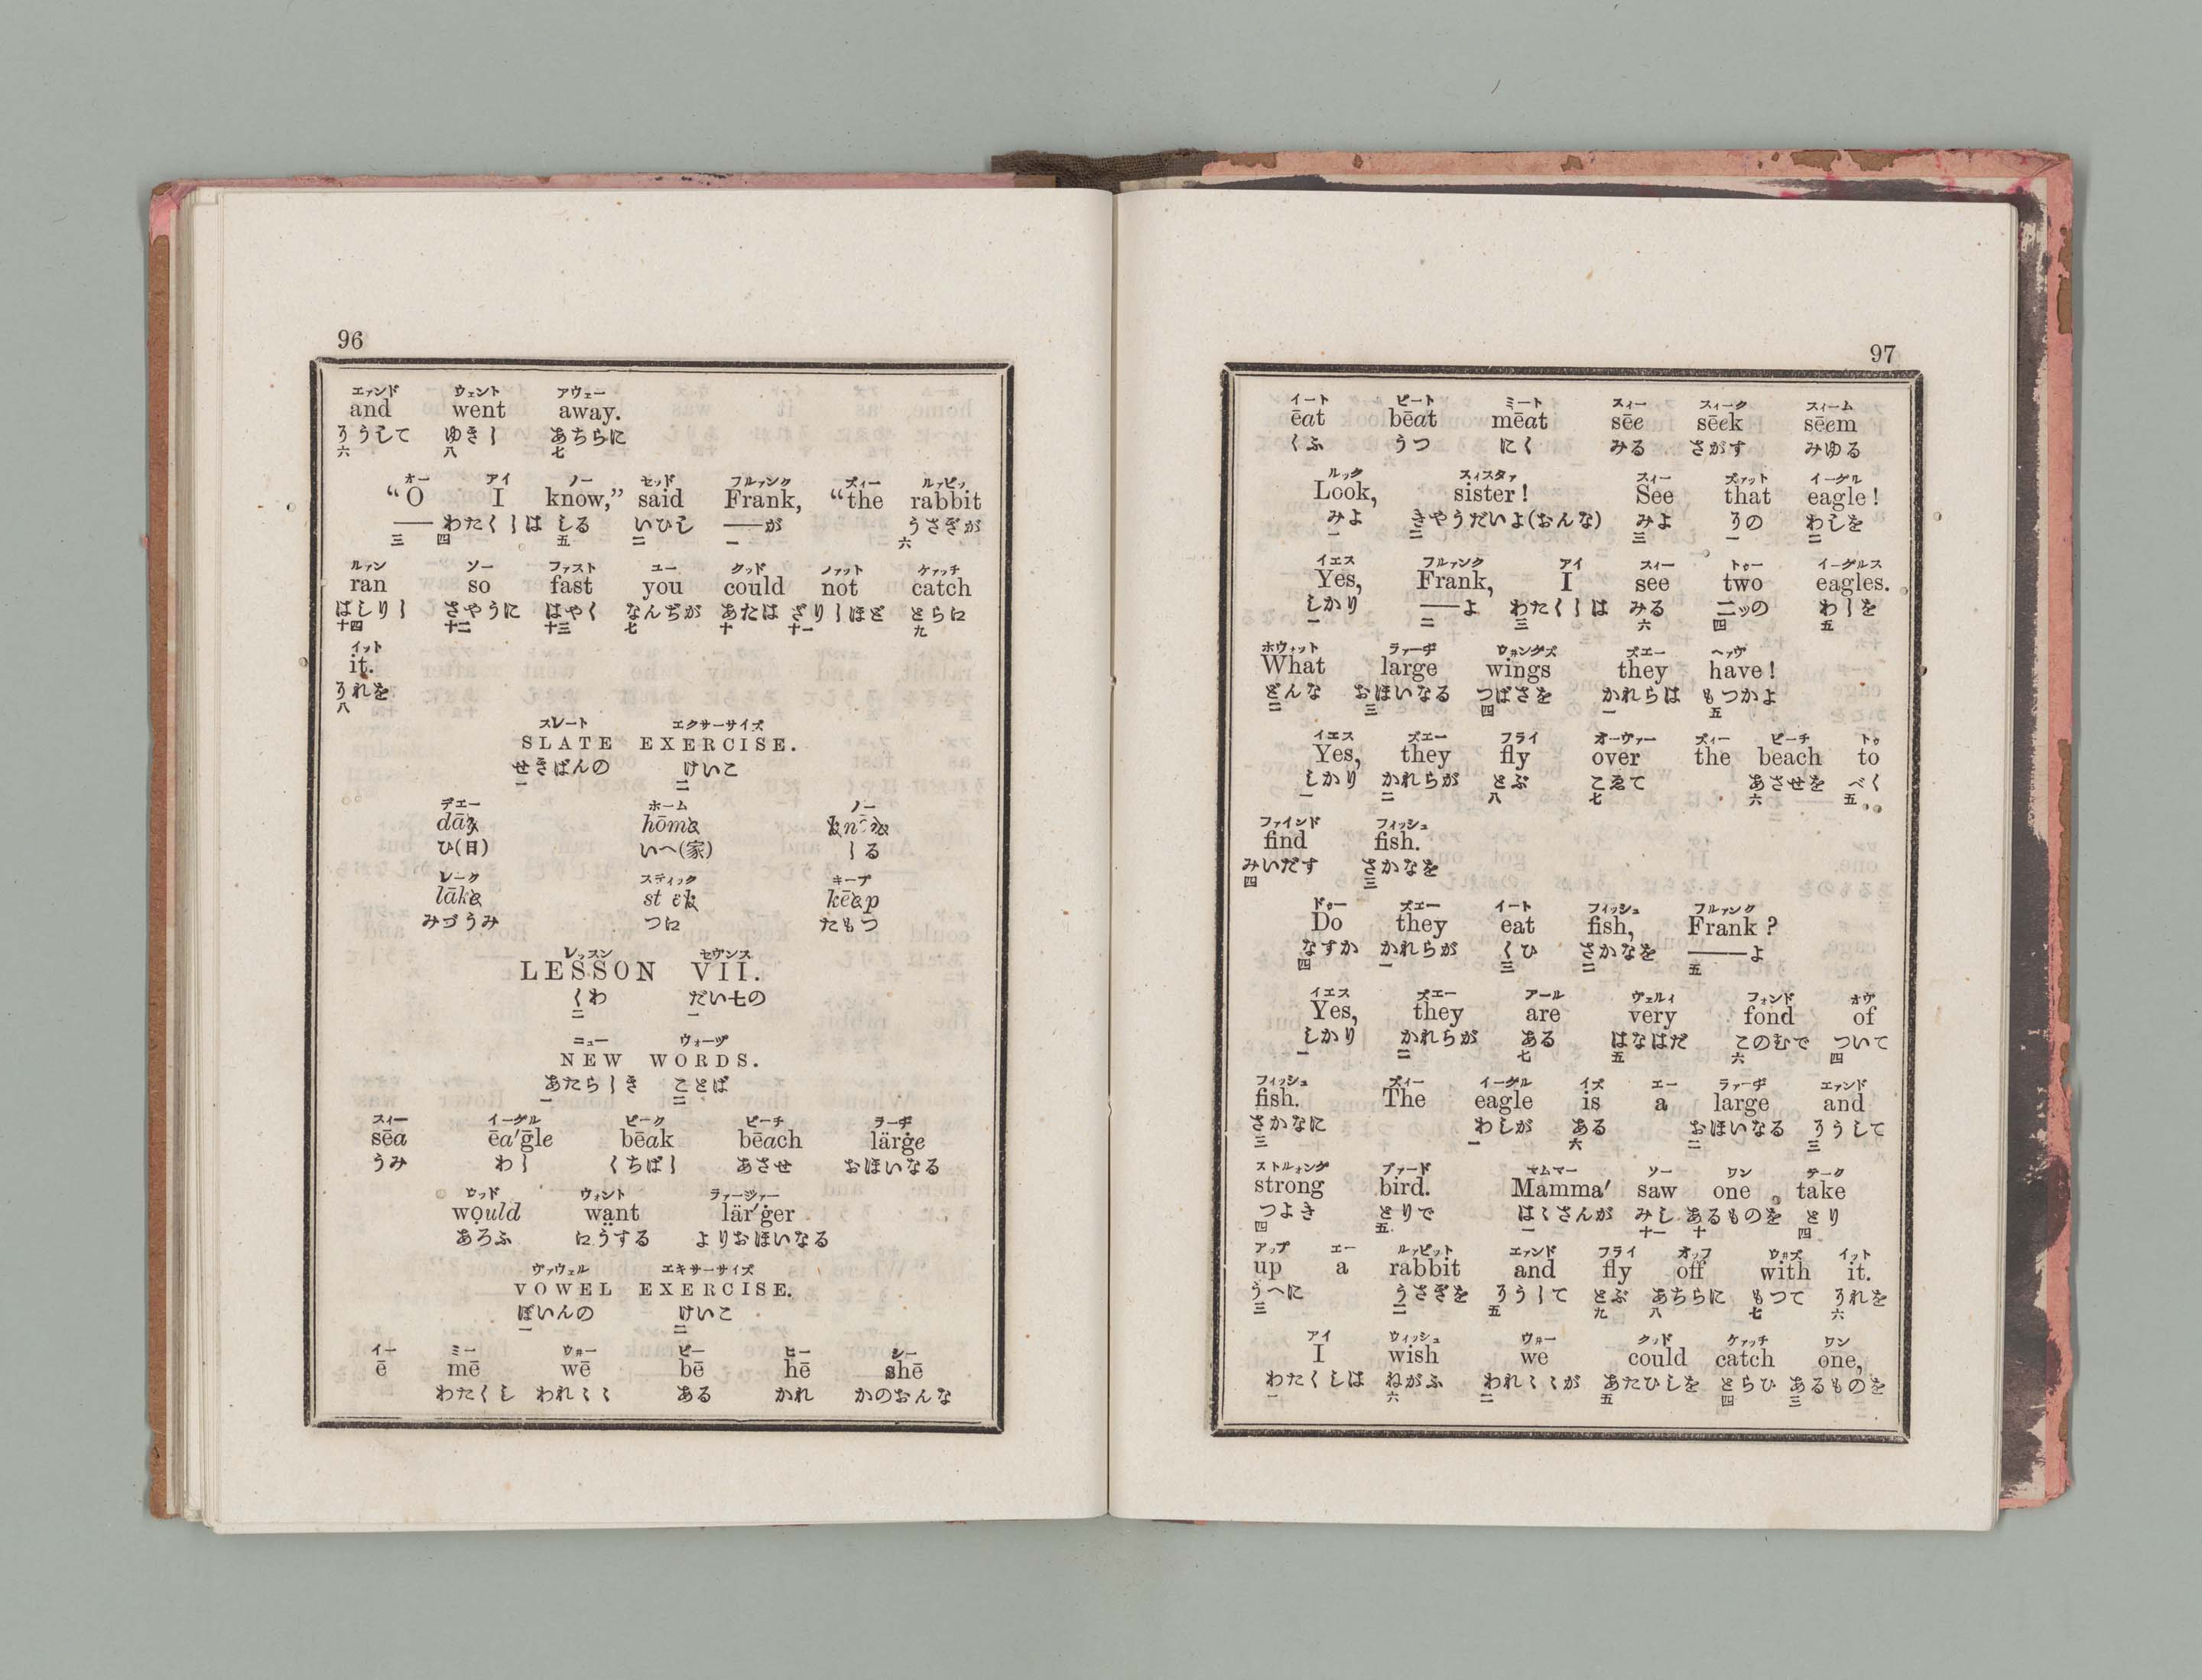 96
エァンド ウェント アウェー
and went away.
そうして ゆきし あちらに
六 八 七
オー アイ ノー セッド フルァンク ズィー ルァビッ
“O I know,” said Frank, “the rabbit
—— わたくしは しる いひし ——が うさぎが
三 四 五 二 一 六
ルァン ソー ファスト ユー クッド ノァット ケァッチ
ran so fast you could not catch
はしりし さやうに はやく なんぢが あたは ざりしほど とらに
十四 十二 十三 七 十 十一 九
イット
it.
それを
八
スレート エクサーサイズ
SLATE EXERCISE.
せきばんの けいこ
一 二
デエー ホーム ノー
dāy hōme knōw
ひ(日) いへ(家) しる
レーク スティック キープ
lāke stick kēep
みづうみ つに たもつ
レッスン セヴンス
LESSON VII.
くわ だい七の
二 一
ニュー ウォーヅ
NEW WORDS.
あたらしき ことば
一 二
スィー イーグル ビーク ビーチ ラーヂ
sēa ēa′gle bēak bēach lärge
うみ わし くちばし あさせ おほいなる
ウッド ウォント ラァージァー
would want lär′ger
あろふ にうする よりおほいなる
ヴァウェル エキサーサイズ
VOWEL EXERCISE.
ぼいんの けいこ
一 二
イー ミー ウ井ー ビー ヒー シー
ē mē wē bē hē shē
わたくし われ〱 ある かれ かのおんな
97
イート ビート ミート スィー スィーク スィーム
ēat bēat mēat sēe sēek sēem
くふ うつ にく みる さがす みゆる
ルック スィスタァ スィー ズァット イーグル
Look, sister! See that eagle!
みよ きやうだいよ(おんな) みよ その わしを
一 二 三 一 二
イエス フルァンク アイ スィー トゥー イーグルス
Yes, Frank, I see two eagles.
しかり ——よ わたくしは みる 二ッの わしを
一 二 三 六 四 五
ホウォット ラァーヂ ウ井ングズ ズエー ヘァヴ
What large wings they have!
どんな おほいなる つばさを かれらは もつかよ
二 三 四 一 五
イエス ズエー フライ オーヴァー ズィー ビーチ トゥ
Yes, they fly over the beach to
しかり かれらが とぶ こゑて あさせを べく
一 二 八 七 六 五
ファインド フィッシュ
find fish.
みいだす さかなを
四 三
ドゥー ズエー イート フィッシュ フルァンク
Do they eat fish, Frank?
なすか かれらが くひ さかなを ——よ
四 一 三 二 五
イエス ズエー アール ヴェルィ フォンド オヴ
Yes, they are very fond of
しかり かれらが ある はなはだ このむで ついて
一 二 七 五 六 四
フィッシュ ズィー イーグル イズ エー ラァーヂ エァンド
fish. The eagle is a large and
さかなに わしが ある おほいなる そうして
三 一 六 二 三
ストルォング ブァード マムマー ソー ワン テーク
strong bird. Mamma′ saw one take
つよき とりで はゝさんが みし あるものを とり
四 五 一 十一 十 四
アップ エー ルァビット エァンド フライ オッフ ウ井ズ イット
up a rabbit and fly off with it.
うへに うさぎを そうして とぶ あちらに もつて それを
三 二 五 九 八 七 六
アイ ウィッシュ ウ井ー クッド ケァッチ ワン
I wish we could catch one,
わたくしは ねがふ われ〱が あたひしを とらひ あるものを
一 六 二 五 四 三